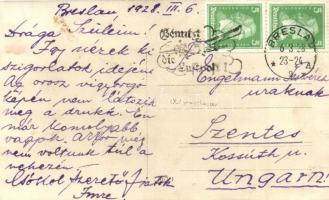 Breslau 1928. III. 6.
Drága Szüleim!
Így nézek ki
szigorlatok idején.
Az orosz vigyorgó
képén nem látszik
meg a drukk. Én
már komolyabb
vagyok.
nem voltunk túl a
nehezén.
Csókol szerető fiatok
Imre
Benutzt
die
Luftpost
BRESLAU
6.3.28
23-24
5
5
Engelmann
uraknak
Szentes
Kossuth u.
Ungarn